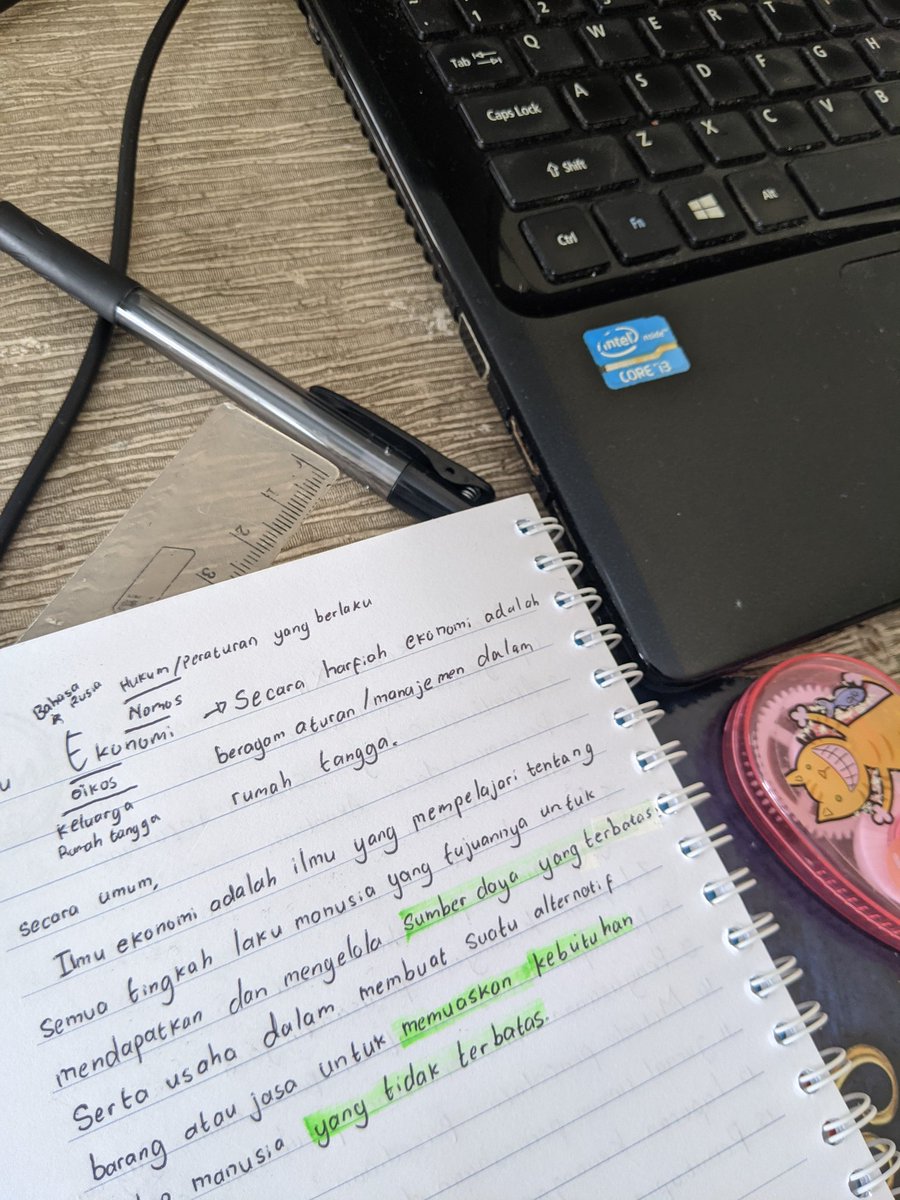 1
2
Tab
Q
W
E
R
T
Y
Caps Lock
A
S
D
F
G
H
Shift
Z
X
C
V
B
Ctrl
Fn
Alt
intel inside
CORE i3
1
2
3
Hukum/Peraturan yang berlaku
Bahasa Rusia
Nomos
→ Secara harfiah ekonomi adalah
Ekonomi
beragam aturan/manajemen dalam
oikos
rumah tangga.
keluarga
Rumah tangga
secara umum,
Ilmu ekonomi adalah ilmu yang mempelajari tentang
semua tingkah laku manusia yang tujuannya untuk
mendapatkan dan mengelola sumber daya yang terbatas.
Serta usaha dalam membuat suatu alternatif
barang atau jasa untuk memuaskan kebutuhan
manusia yang tidak terbatas.